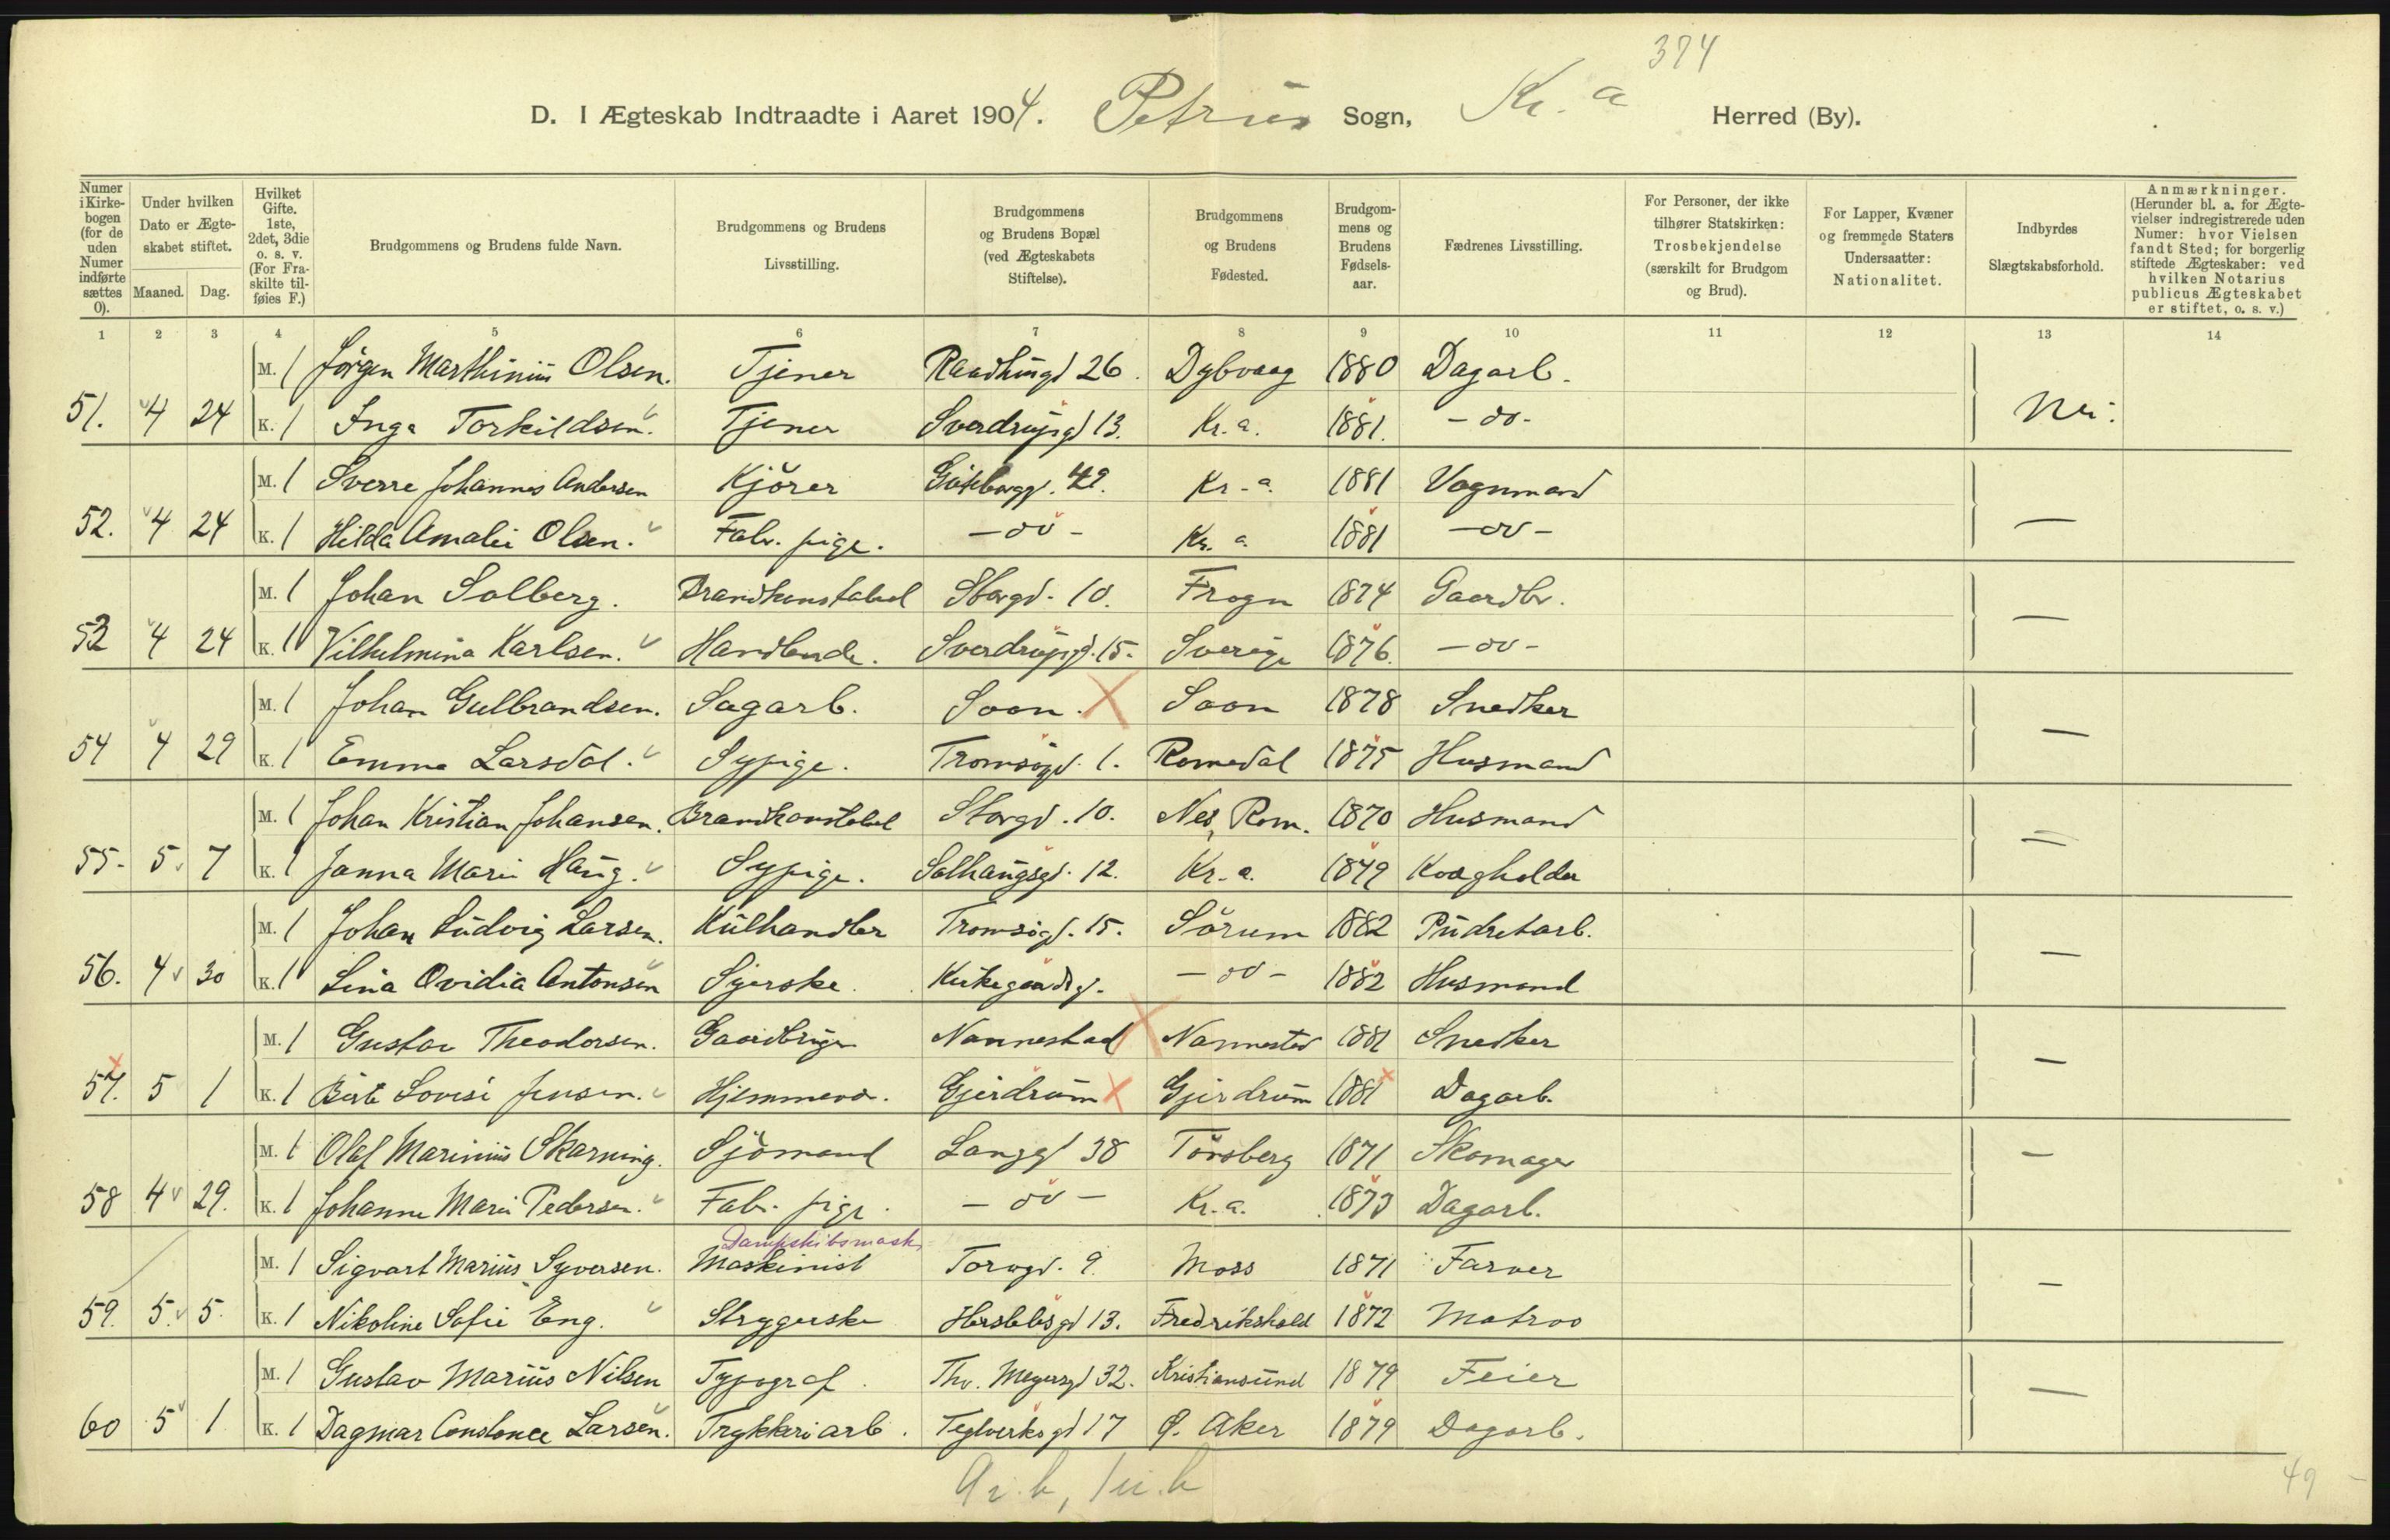 374
D. I Ægteskab Indtraadte i Aaret 1904. Petrus Sogn, Kr. a Herred (By).
Numer i Kirkebogen (for de uden Numer indførte sættes 0).
Under hvilken Dato er Ægteskabet stiftet.
Maaned. Dag.
Hvilket Gifte. 1ste, 2det, 3die o. s. v. (For Fraskilte tilføies F.)
Brudgommens og Brudens fulde Navn.
Brudgommens og Brudens Livsstilling.
Brudgommens og Brudens Bopæl (ved Ægteskabets Stiftelse).
Brudgommens og Brudens Fødested.
Brudgommens og Brudens Fødselsaar.
Fædrenes Livsstilling.
For Personer, der ikke tilhører Statskirken: Trosbekjendelse (særskilt for Brudgom og Brud).
For Lapper, Kvæner og fremmede Staters Undersaatter: Nationalitet.
Indbyrdes Slægtskabsforhold.
Anmærkninger. (Herunder bl. a. for Ægtevielser indregistrerede uden Numer: hvor Vielsen fandt Sted; for borgerlig stiftede Ægteskaber: ved hvilken Notarius publicus Ægteskabet er stiftet, o. s. v.)
1 2 3 4 5 6 7 8 9 10 11 12 13 14
M. 1 Jörgen Marthinius Olsen. Tjener Raadhusgd 26. Dybvaag 1880 Dagarb.
51. 4 24 K. 1 Inga Torkildsen. Tjener Sverdrupsgd 13. Kr. a. 1881. - do - Nei.
M. 1 Sverre Johannes Andersen Kjörer 42. Kr. a. 1881 Vognmand
52. 4 24 K. 1 Hilda Amalie Olsen. Fabr. pige. - do - Kr. a. 1881 - do - —
M. 1 Johan Solberg. Brandkonstabel Storgd. 10. Frogn 1874 Gaardbr.
53 4 24 K. 1 Vilhelmina Karlsen. Handlende. Sverdrupsgd. 15. Sverige 1876. - do - —
M. 1 Johan Gulbrandsen. Sagarb. Soon. Soon 1878 Snedker
54 4 29 K. 1 Emma Larsdal. Sypige. Tromsögd. 1. Romedal 1875 Husmand —
M. 1 Johan Kristian Johansen. Brandkonstabel Storgd. 10. Nes, Rom. 1870 Husmand
55. 5 7 K. 1 Janna Marie Haug. Sypige. Solhaugsgd. 12. Kr. a. 1879 Kvægholder —
M. 1 Johan Ludvig Larsen. Kulhandler Tromsögd. 15. Sörum 1882 Pudretarb.
56. 4 30 K. 1 Lina Ovidia Antonsen Syerske. Kirkegaardsg. - do - 1882 Husmand —
M. 1 Gustav Theodorsen. Gaardbruger Nannestad Nannestad 1881 Snedker
57. 5 1 K. 1 Berte Lovise Jensen. Hjemmevær. Gjerdrum Gjerdrum 1881 Dagarb. —
M. 1 Olaf Marinius Skarning. Sjömand Langgd 38 Tönsberg 1871 Skomager
58 4 29. K. 1 Johanne Marie Pedersen. Fabr. pige. - do - Kr. a. 1873 Dagarb. —
Dampskibsmask.
M. 1 Sigvart Marius Syversen. Maskinist Torvgd. 9. Moss 1871 Farver
59. 5. 5. K. 1 Nikoline Sofie Eng. Strygerske Herslebsgd 13. Fredrikshald 1872 Matros —
M. 1 Gustav Marius Nilsen Typograf. Thv. Meyersgd 32. Kristiansund 1879 Feier
60 5 1 K. 1 Dagmar Constance Larsen. Trykkeriarb. Teglverksgd 17 Ø. Aker 1879 Dagarb. —
49